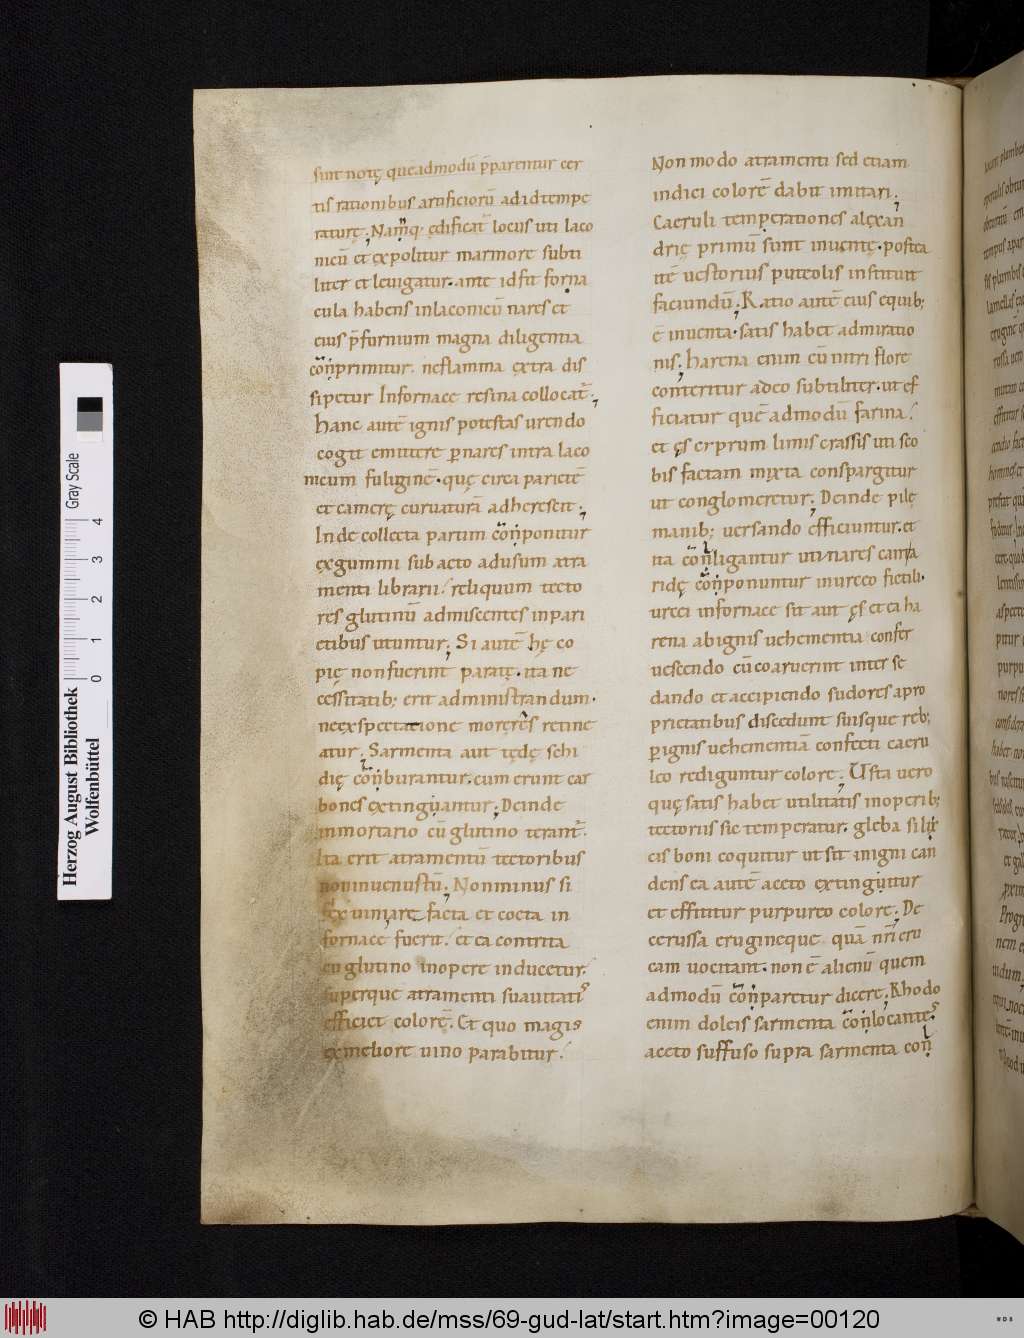 sunt notę queadmodū p̄parentur cer
tis rationibus artificiorū adidtempe
raturę; Namq; ędificat̄ locus uti laco
nicū et expolitur marmore subti
liter et leuigatur. ante id fit forna
cula habens inlaconicū nares et
eius p̄furnium magna diligentia
conprimitur. neflamma extra dis
sipetur Infornace resina collocat̄;
hanc autē ignis potestas urendo
cogit emittere p nares intra laco
nicum fuliginē. quę circa parietē
et camerę curuaturā adherescit;
Inde collecta partim conponitur
exgummi subacto adusum atra
menti librarii! reliquum tecto
res glutinū admiscentes inpari
etibus utuntur; Si autē hę co
pię nonfuerint paratę. ita ne
cessitatib; erit administrandum.
neexspectatione morę res retine
atur; Sarmenta aut tędę schi
dię conburantur. cum erunt car
bones extinguantur; Deinde
inmortario cū glutino terant̄.
Ita erit atramentū tectoribus
noninuenustū; Nonminus si
fęx uini arefacta et cocta in
fornace fuerit! et ea contrita
cū glutino inopere inducetur!
superque atramenti suauitatis
efficiet colorē. Et quo magis
exmeliore uino parabitur!
Non modo atramenti sed etiam
indici colorē dabit imitari;
Caeruli temperationes alexan
drię primū sunt inuentę. postea
itē uestorius puteolis instituit
faciundū; Ratio autē eius equib;
ē inuenta. satis habet admiratio
nis; harena enim cū nitri flore
conteritur adeo subtiliter. ut ef
ficiatur quē admodū farina!
et ęs cyprum limis crassis uti sco
bis factam mixta conspargitur
ut conglomeretur; Deinde pilę
manib; uersando efficiuntur. et
ita conligantur uti nares cama
ridę conponuntur inurceo fictili.
urcei infornace sit aut ęs et ea ha
rena abignis uehementia confer
uescendo cū coaruerint inter se
dando et accipiendo sudores apro
prietatibus discedunt suisque reb;
p ignis uehementiā confecti caeru
leo rediguntur colore; Usta uero
quę satis habet utilitatis inoperib;
tectoriis sic temperatur. gleba silir
cis boni coquitur ut sit inigni can
dens ea autē aceto extinguitur
et effititur purpureo colore; De
cerussa erugineque quā nr̄i eru
cam uocitant. non ē alienū quem
admodū conparetur dicere; Rhodo
enim doleis sarmenta conlocantes
aceto suffuso supra sarmenta con
Herzog August Bibliothek
Wolfenbüttel
0 1 2 3 4
Gray Scale
© HAB http://diglib.hab.de/mss/69-gud-lat/start.htm?image=00120